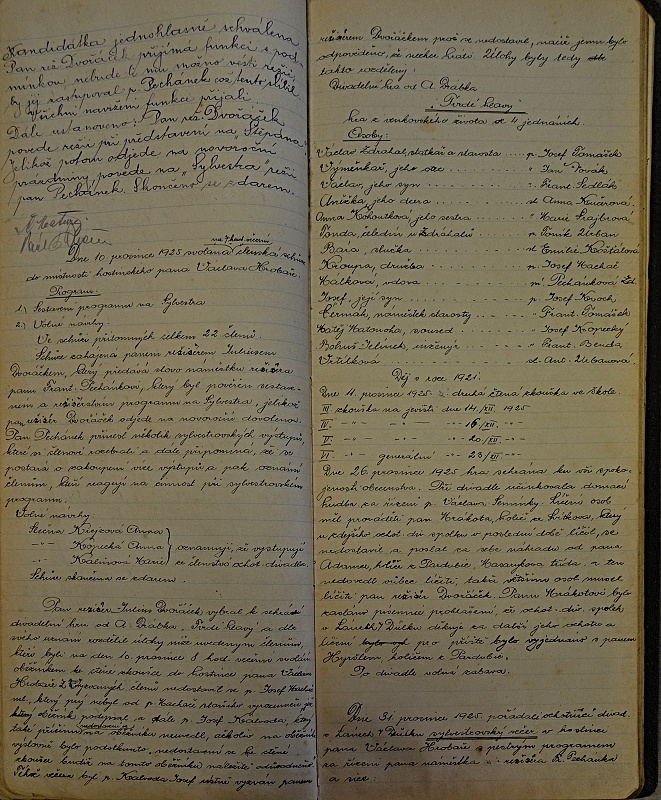 Kandidátka jednohlasně schválena
Pan rež. Dvořáček přijímá funkci s pod
mínkou, nebude-li mu možno vésti režii,
by jej zastupoval p. Pechánek což tento slíbil.
Všichni navržení funkce přijali.
Dále ustanoveno: Pan rež. Dvořáček
povede režii při představení na Štěpána
jelikož potom odjede na novoroční
prázdniny, povede na „Sylvestra" režii
pan Pechánek. Skončeno se zdarem.
na 7 hod. večerní
Dne 10. prosince 1925 svolána členská schůze
do místnosti hostinského pana Václava Hrobaře.
Program:
1) Sestavení programu na Sylvestra
2) Volné návrhy.
Ve schůzi přítomných celkem 22 členů.
Schůze zahájena panem režisérem Juliusem
Dvořáčkem, který předává slovo náměstku režiséra
panu Frant. Pechánkovi, který byl pověřen sestave-
ním a režisérstvím programu na Sylvestra, jelikož
pan režisér Dvořáček odjede na novoroční dovolenou.
Pan Pechánek přinesl několik sylvestrovských výstupů,
které si členové rozebrali a dále připomíná, že se
postará o zakoupení více výstupů a pak oznámí
členům, kteří reagují na činnost při sylvestrovském
programu.
Volné návrhy:
Slečna Krejzová Anna
-"- Kopecká Anna } oznamují, že vystupují
-"- Kvalinová Marie ze členstva ochot. divadla.
Schůze skončena se zdarem.
Pan režisér Julius Dvořáček vybral k sehrání
divadelní hru od A. Drábka „Tvrdé hlavy" a dle
svého uznání rozdělil úlohy níže uvedeným členům,
kteří byli na den 10. prosince 8 hod. večerní svoláni
oběžníkem ke čtené zkoušce do hostince pana Václava
Hrobaře. Z vyzvaných členů nedostavil se p. Josef Machač
ml., který prý nebyl od p. Macháče staršího vyrozuměn
který oběžník podepsal a dále p. Josef Kalvoda, který
také přítomnost na oběžníku neuvedl, ačkoliv na oběžníku
výslovně bylo podotknuto: nedostavení se ke čtené
zkoušce budiž na tomto oběžníku náležitě odůvodněno.
Téhož večera byl p. Kalvoda Josef ústně vyzván panem
režisérem Dvořáčkem proč se nedostavil, načež jemu bylo
odpovězeno, že nechce hráti. Úlohy byly tedy
takto rozděleny:
Divadelní hra od A. Drábka
„Tvrdé hlavy"
hra z venkovského života ve 4 jednáních.
Osoby:
Václav Zdráhal, statkář a starosta .... p. Josef Tomášek
Výměnkář, jeho otec .... " Jan Novák
Václav, jeho syn .... " Frant. Sedlák
Anička, jeho dcera .... sl. Anna Kučerová.
Anna Kohoutková, jeho sestra .... " Marie Krajbrová
Vonda, čeledín u Zdráhalů .... p. Toník Urban
Bára, služka .... sl. Emilie Košťálová
Kroupa, družba .... p. Josef Machač
Hálková, vdova .... pí. Pechánková Zd.
Josef, její syn .... p. Josef Kovoch,
Čermák, náměstek starosty .... " Frant. Tomášek
Matěj Hatonoha, soused .... " Josef Kopecký
Bohuš Jelínek, inženýr .... " Frant. Benda,
Vrtílková .... sl. Ant. Urbanová.
Děj v roce 1921.
Dne 11. prosince 1925 druhá čtená zkouška ve škole.
III zkouška na jevišti dne 14/XII. 1925
IV -"- -"- -"- 16/XII. -"-
V -"- -"- -"- 20/XII -"-
VI -"- generální -"- 23/XII -"-
Dne 26. prosince 1925 hra sehrána ku vší spoko-
jenosti obecenstva. Při divadle účinkovala domácí
hudba za řízení p. Václava Semínky. Líčení osob
měl prováděti pan Hrakola, holič ze Srítkova, který
u zdejšího ochot. div. spolku v poslední době líčil, se
nedostavil a poslal za sebe náhradu od pana
Adamce, holiče z Pardubic, Masarykova třída. a ten
nedovedl vůbec líčiti, takže většinu osob musel
líčiti pan režisér Dvořáček. Panu Hrákolovi bylo
zasláno písemné prohlášení, že ochot. div. spolek
v Lánech n/Důlku děkuje za další jeho ochotu a
líčení pro příště bylo vyjednáno s panem
Heysslem, holičem z Pardubic.
Po divadle volná zábava.
Dne 31. prosince 1925 pořádali ochotníci divad.
v Lánech n/Důlku sylvestrovský večer v hostinci
pana Václava Hrobaře s pestrým programem
za řízení pana náměstka režiséra Fr. Pechánka
a sice: